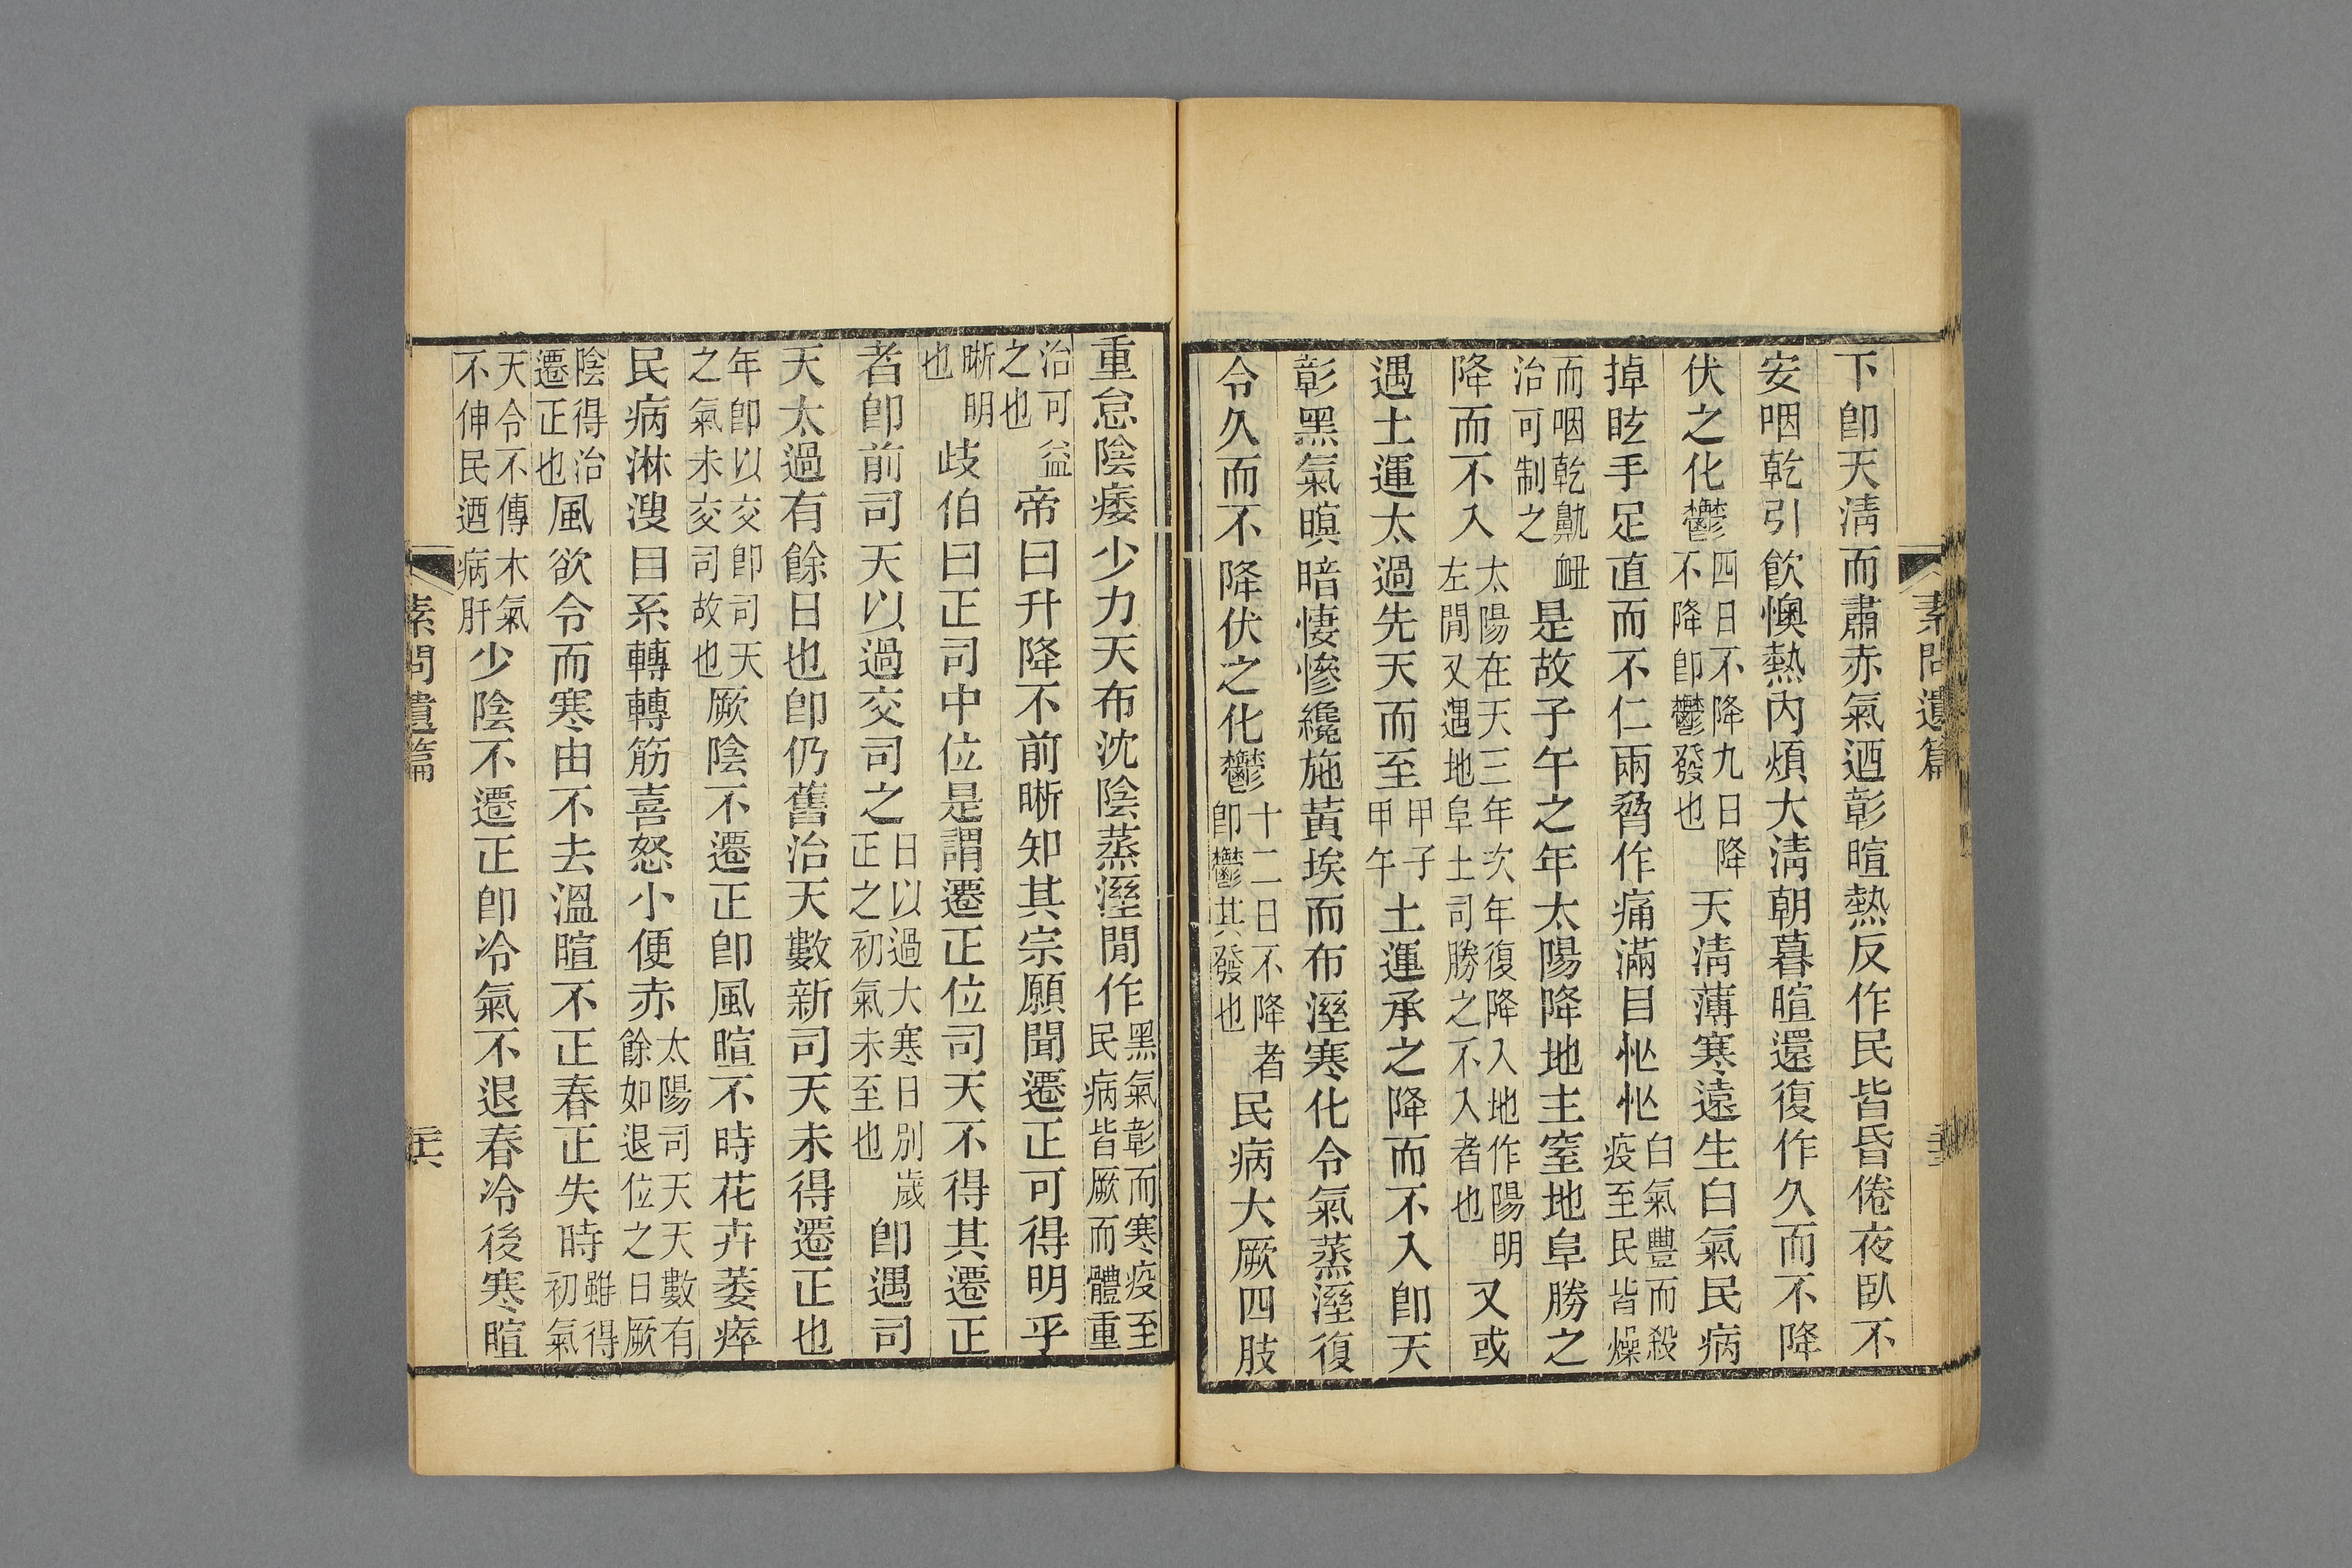 素問遺篇
下卽天淸而肅赤氣迺彰暄熱反作民皆昏倦夜臥不
安咽乾引飮懊熱內煩大淸朝暮暄還復作久而不降
伏之化鬱四日不降九日降不降卽鬱發也天淸薄寒遠生白氣民病
掉眩手足直而不仁兩脅作痛滿目𥉂𥉂白氣豐而殺疫至民皆燥
而咽乾鼽衄治可制之是故子午之年太陽降地主窒地阜勝之
降而不入太陽在天三年次年復降入地作陽明左閒又遇地阜土司勝之不入者也又或
遇土運太過先天而至甲子甲午土運承之降而不入卽天
彰黑氣暝暗悽慘纔施黃埃而布溼寒化令氣蒸溼復
令久而不降伏之化鬱十二日不降者卽鬱其發也民病大厥四肢
重怠陰痿少力天布沈陰蒸溼閒作黑氣彰而寒疫至民病皆厥而體重
治可益之也帝曰升降不前晰知其宗願聞遷正可得明乎
晰明也歧伯曰正司中位是謂遷正位司天不得其遷正
者卽前司天以過交司之日以過大寒日別歲正之初氣未至也卽遇司
天太過有餘日也卽仍舊治天數新司天未得遷正也
年卽以交卽司天之氣未交司故也厥陰不遷正卽風暄不時花卉萎瘁
民病淋溲目系轉轉筋喜怒小便赤太陽司天天數有餘如退位之日厥
陰得治遷正也風欲令而寒由不去溫暄不正春正失時雖得初氣
天令不傳木氣不伸民迺病肝少陰不遷正卽冷氣不退春冷後寒暄
素問遺篇